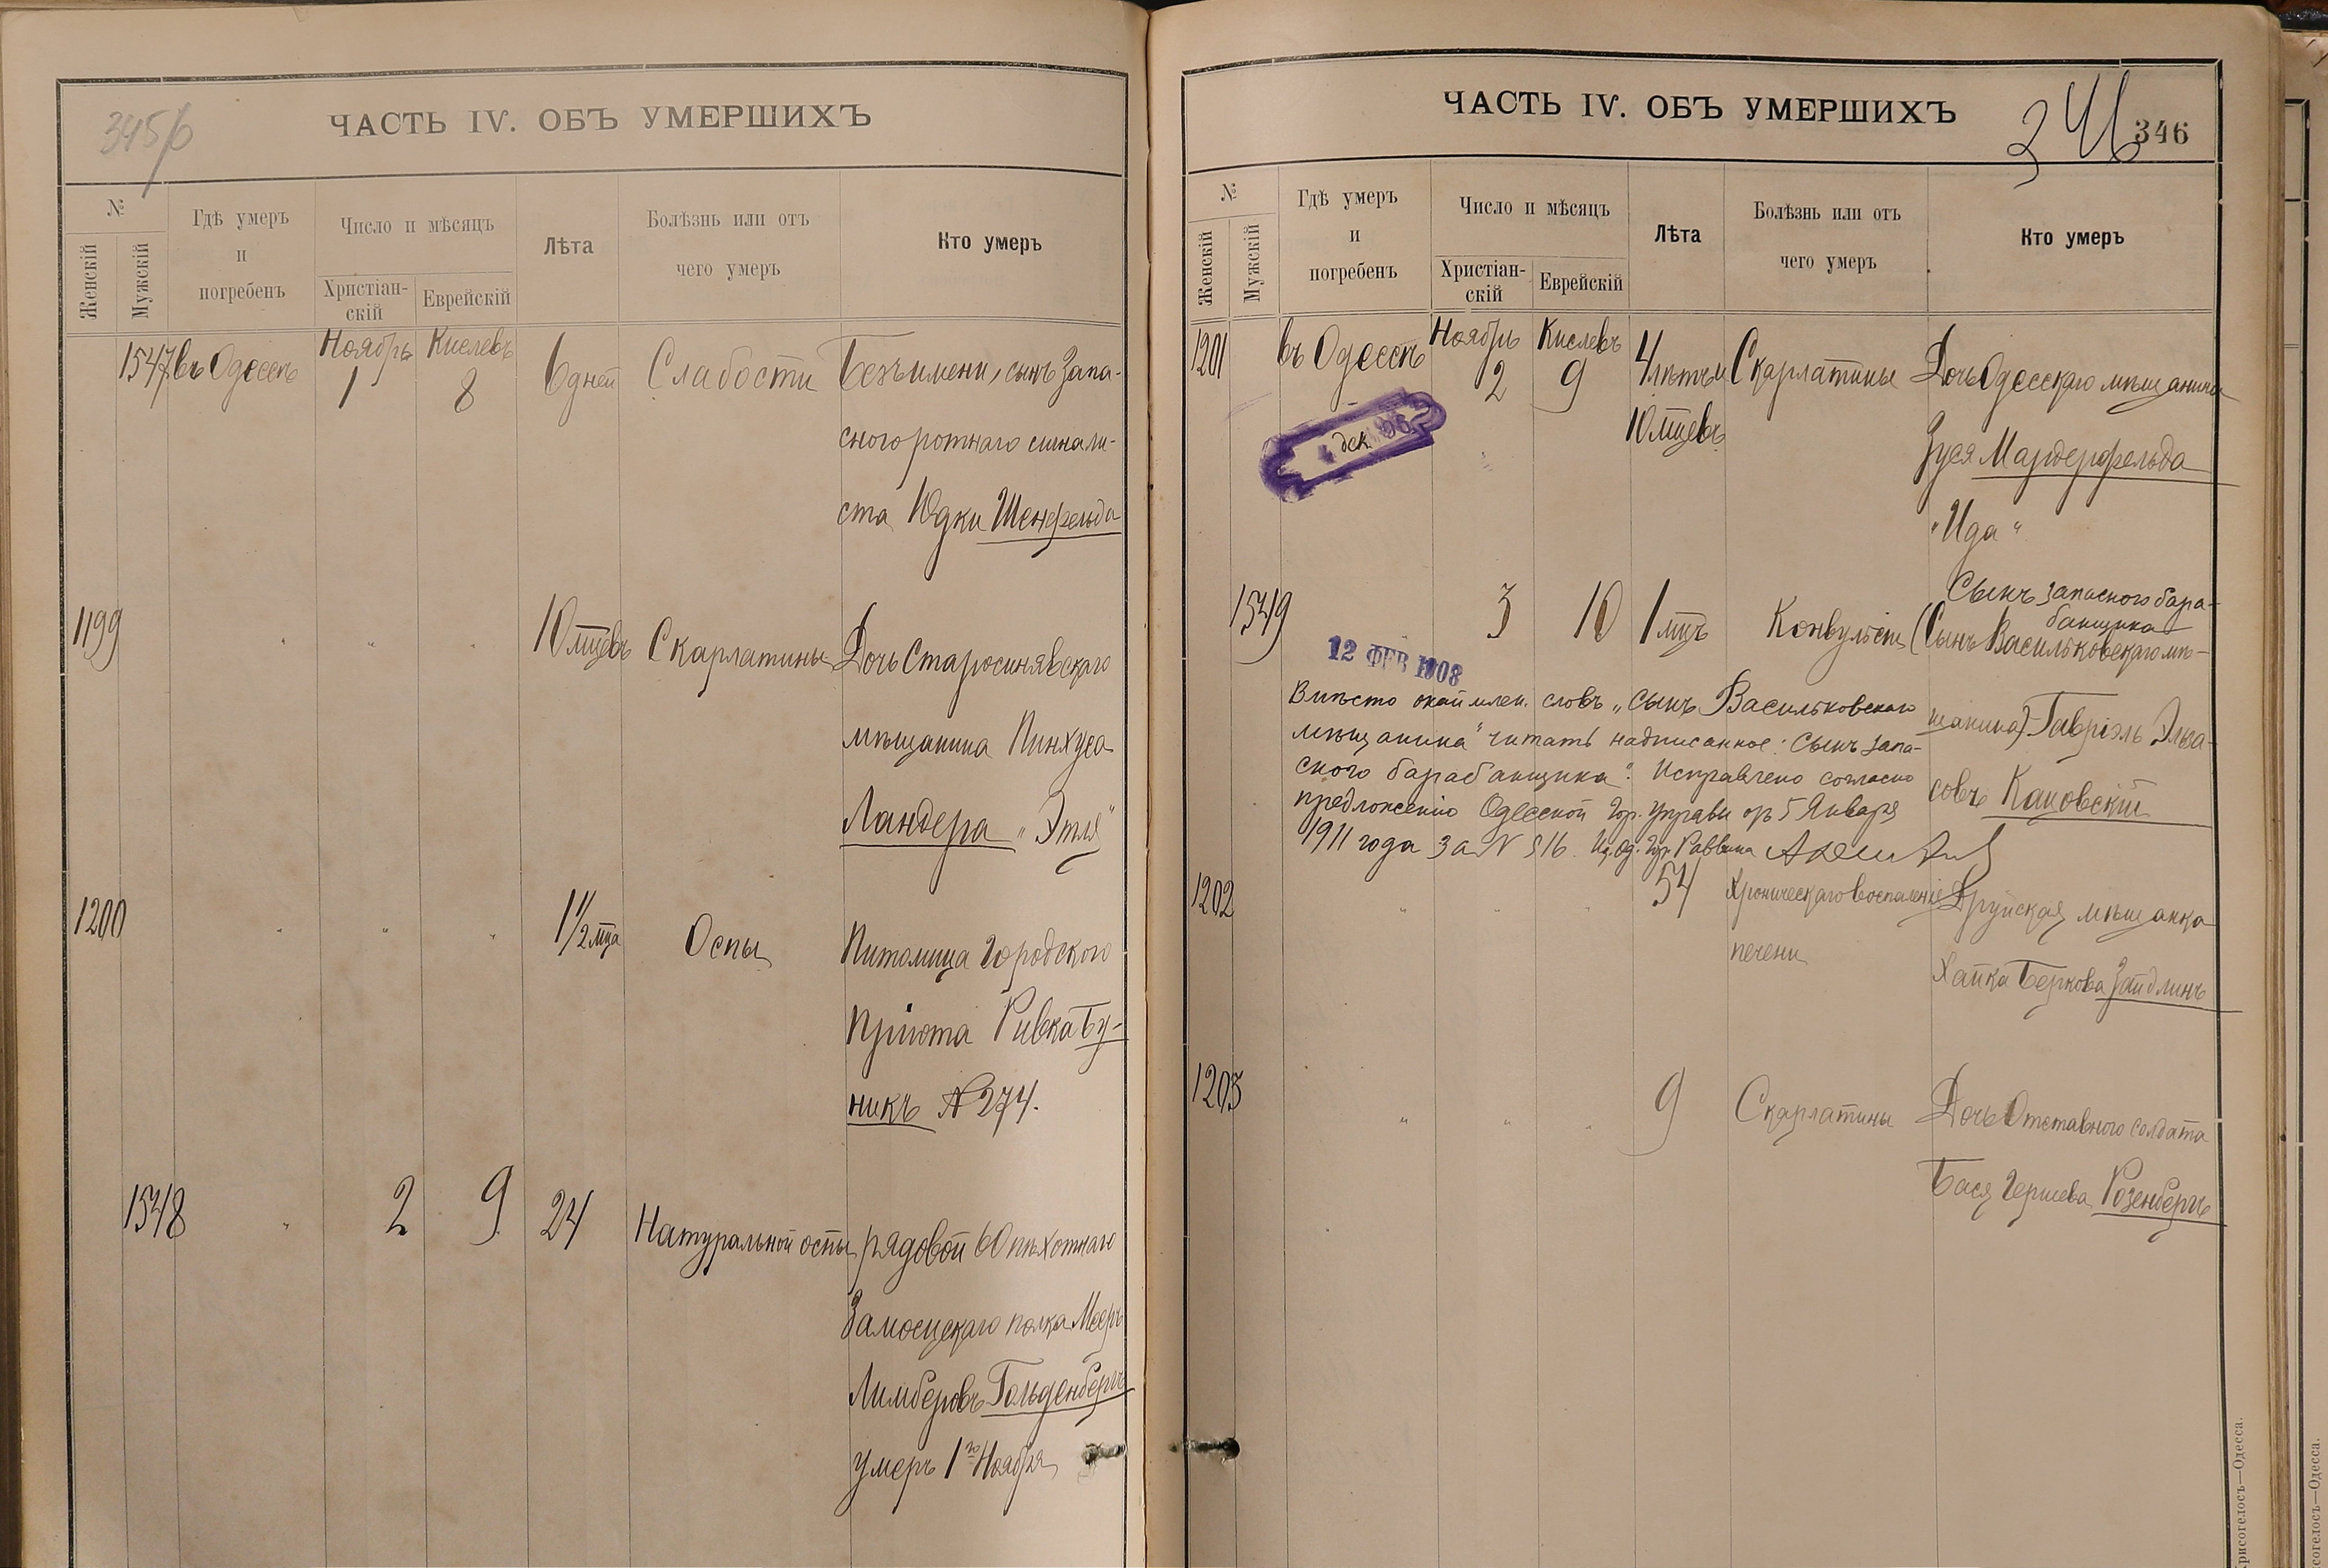 345/б
ЧАСТЬ IV. ОБЪ УМЕРШИХЪ
№
Женскій
Мужскій
Гдѣ умеръ
и
погребенъ
Число и мѣсяцъ
Христіан-
скій
Еврейскій
Лѣта
Болѣзнь или отъ
чего умеръ
Кто умеръ
1547 въ Одессѣ Ноябрь 1 Кислевъ 8 6 дней Слабости Безъ имени, сынъ запа-
сного ротнаго сигнали-
ста Юдки Шенфельда
1199 " " " 10 мцевъ Скарлатины Дочь Старосинявскаго
мѣщанина Пинхуса
Ландера "Этля"
1200 " " " 1 1/2 мца Оспы Питомица городского
пріюта Ривка Бу-
никъ № 274.
1548 " 2 9 24 Натуральной оспы рядовой 60 пѣхотнаго
Замосцскаго полка Мееръ
Лимберовъ Гольденбергъ
умеръ 1го Ноября
ЧАСТЬ IV. ОБЪ УМЕРШИХЪ
346
346
№
Женскій
Мужскій
Гдѣ умеръ
и
погребенъ
Число и мѣсяцъ
Христіан-
скій
Еврейскій
Лѣта
Болѣзнь или отъ
чего умеръ
Кто умеръ
1201 въ Одессѣ Ноябрь 2 Кислевъ 9 4 лѣтъ и Скарлатины Дочь Одесскаго мѣщанина
10 мцевъ
Зуся Мардерфельда
"Ида"
дек
Сынъ запасного бара-
банщика
1549 3 10 1 мцъ Конвульсіи (Сынъ Васильковскаго мѣ-
щанина) Гавріэль Эльза-
совъ Кановскій
12 ФЕВ 1908
Вмѣсто окаймлен. словъ "сынъ Васильковскаго
мѣщанина" читать надписанное: "сынъ запа-
сного барабанщика". Исправлено согласно
предложенію Одесской Гор. Управы отъ 5 Января
1911 года за № 516. И. об. Гор. Раввина
1202 " " " 54 Хроническаго воспаленіе Друйская мѣщанка
печени
Хайка Беркова Зайдлинъ
1203 " " " 9 Скарлатины Дочь Отставного солдата
Бася Гершева Розенбергъ
Хрисогелосъ—Одесса.
согелосъ—Одесса.